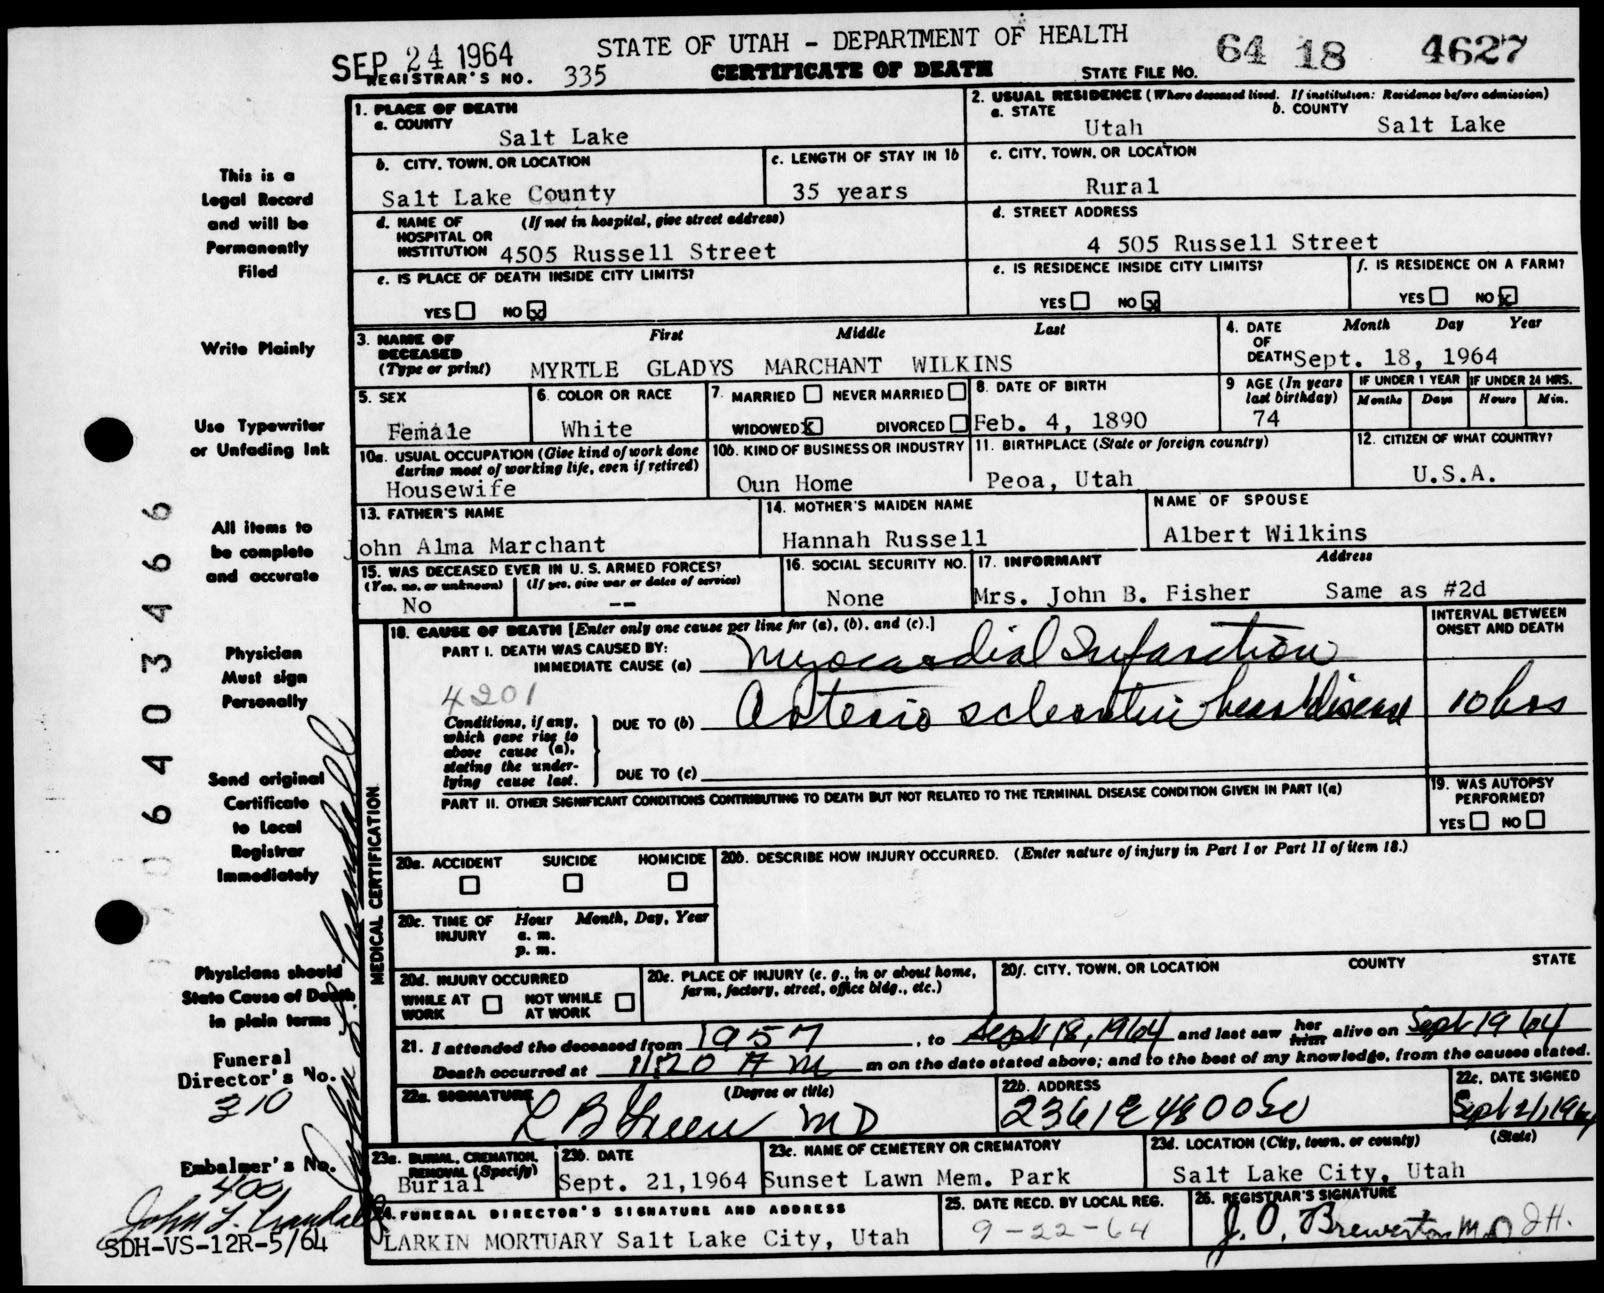 SEP 24 1964
STATE OF UTAH - DEPARTMENT OF HEALTH
64 18 4627
REGISTRAR'S NO. 335
CERTIFICATE OF DEATH
STATE FILE NO.
This is a
Legal Record
and will be
Permanently
Filed
Write Plainly
Use Typewriter
or Unfading Ink
All items to
be complete
and accurate
Physician
Must sign
Personally
Send original
Certificate
to Local
Registrar
Immediately
Physicians should
State Cause of Death
in plain terms
Funeral
Director's No.
310
Embalmer's No.
400
John L. Crandall
SDH-VS-12R-5/64
6403466
John L. Crandall
1. PLACE OF DEATH
a. COUNTY
Salt Lake
2. USUAL RESIDENCE (Where deceased lived. If institution: Residence before admission)
a. STATE
Utah
b. COUNTY
Salt Lake
b. CITY, TOWN, OR LOCATION
Salt Lake County
c. LENGTH OF STAY IN 1b
35 years
c. CITY, TOWN, OR LOCATION
Rural
d. NAME OF HOSPITAL OR INSTITUTION
(If not in hospital, give street address)
4505 Russell Street
d. STREET ADDRESS
4 505 Russell Street
e. IS PLACE OF DEATH INSIDE CITY LIMITS?
YES NO x
e. IS RESIDENCE INSIDE CITY LIMITS?
YES NO x
f. IS RESIDENCE ON A FARM?
YES NO x
3. NAME OF DECEASED
(Type or print)
First Middle Last
MYRTLE GLADYS MARCHANT WILKINS
4. DATE OF DEATH
Month Day Year
Sept. 18, 1964
5. SEX
Female
6. COLOR OR RACE
White
7. MARRIED NEVER MARRIED
WIDOWED x DIVORCED
8. DATE OF BIRTH
Feb. 4, 1890
9 AGE (In years last birthday)
74
IF UNDER 1 YEAR
Months Days
IF UNDER 24 HRS.
Hours Min.
10a. USUAL OCCUPATION (Give kind of work done during most of working life, even if retired)
Housewife
10b. KIND OF BUSINESS OR INDUSTRY
Oun Home
11. BIRTHPLACE (State or foreign country)
Peoa, Utah
12. CITIZEN OF WHAT COUNTRY?
U.S.A.
13. FATHER'S NAME
John Alma Marchant
14. MOTHER'S MAIDEN NAME
Hannah Russell
NAME OF SPOUSE
Albert Wilkins
15. WAS DECEASED EVER IN U.S. ARMED FORCES?
(Yes, no, or unknown) (If yes, give war or dates of service)
No --
16. SOCIAL SECURITY NO.
None
17. INFORMANT Address
Mrs. John B. Fisher Same as #2d
MEDICAL CERTIFICATION
18. CAUSE OF DEATH [Enter only one cause per line for (a), (b), and (c).]
PART I. DEATH WAS CAUSED BY:
IMMEDIATE CAUSE (a) Myocardial Infarction
INTERVAL BETWEEN ONSET AND DEATH
4201
Conditions, if any, which gave rise to above cause (a), stating the underlying cause last.
DUE TO (b) Arterio sclerotic heart disease
10 hrs
DUE TO (c)
PART II. OTHER SIGNIFICANT CONDITIONS CONTRIBUTING TO DEATH BUT NOT RELATED TO THE TERMINAL DISEASE CONDITION GIVEN IN PART I(a)
19. WAS AUTOPSY PERFORMED?
YES NO
20a. ACCIDENT SUICIDE HOMICIDE
20b. DESCRIBE HOW INJURY OCCURRED. (Enter nature of injury in Part I or Part II of item 18.)
20c. TIME OF INJURY
Hour Month, Day, Year
a. m.
p. m.
20d. INJURY OCCURRED
WHILE AT WORK NOT WHILE AT WORK
20e. PLACE OF INJURY (e. g., in or about home, farm, factory, street, office bldg., etc.)
20f. CITY, TOWN, OR LOCATION COUNTY STATE
21. I attended the deceased from 1957, to Sept 18, 1964 and last saw her him alive on Sept 19 64
Death occurred at 1120 A M m on the date stated above; and to the best of my knowledge, from the causes stated.
22a. SIGNATURE (Degree or title)
L B Green MD
22b. ADDRESS
2361 E 4800 So
22c. DATE SIGNED
Sept 21, 1964
23a. BURIAL, CREMATION, REMOVAL (Specify)
Burial
23b. DATE
Sept. 21, 1964
23c. NAME OF CEMETERY OR CREMATORY
Sunset Lawn Mem. Park
23d. LOCATION (City, town, or county) (State)
Salt Lake City, Utah
24. FUNERAL DIRECTOR'S SIGNATURE AND ADDRESS
LARKIN MORTUARY Salt Lake City, Utah
25. DATE RECD. BY LOCAL REG.
9-22-64
26. REGISTRAR'S SIGNATURE
J. O. Brewerton M.D. JH.